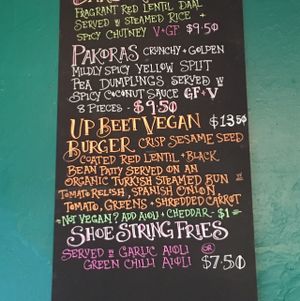 FRAGRANT RED LENTIL DAAL
SERVED W STEAMED RICE +
SPICY CHUTNEY V+GF $9.50
PAKORAS CRUNCHY + GOLDEN
MILDLY SPICY YELLOW SPLIT
PEA DUMPLINGS SERVED W
SPICY COCONUT SAUCE GF+V
8 PIECES - $9.50
UP BEET VEGAN $13.50
BURGER CRISP SESAME SEED
COATED RED LENTIL + BLACK
BEAN PATTY SERVED ON AN
ORGANIC TURKISH STEAMED BUN W
TOMATO RELISH, SPANISH ONION,
TOMATO, GREENS + SHREDDED CARROT
~NOT VEGAN? ADD AIOLI + CHEDDAR - $1~
SHOE STRING FRIES
SERVED W GARLIC AIOLI OR
GREEN CHILLI AIOLI $7.50